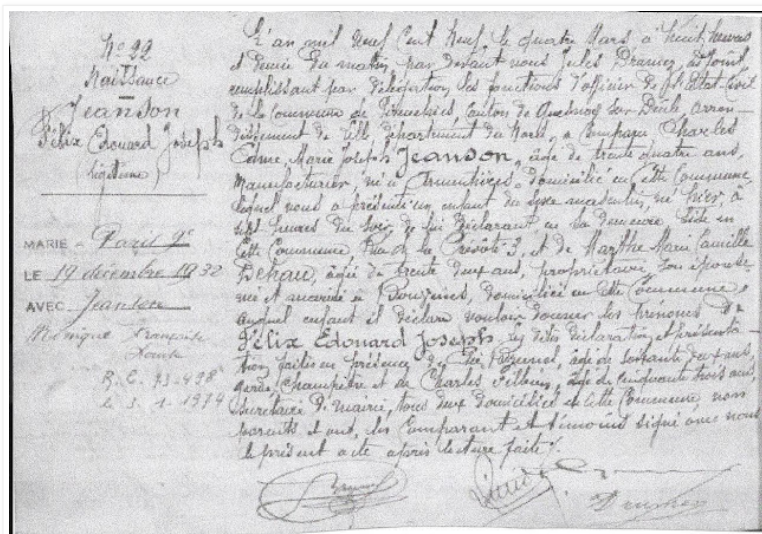 Nº 22
Naissance
Jeanson
Félix Edouard Joseph
(Légitime)
MARIÉ à Paris 9e
LE 19 décembre 1932
AVEC Jeanson
Monique Françoise
R.C. 73-498
le 3.1.1974
L'an mil neuf cent neuf, le quatre Mars à huit heures
et demie du matin, par devant nous Jules adjoint
remplissant par délégation les fonctions d'officier de l'Etat-Civil
de la Commune de canton de Quesnoy sur Deûle arron-
dissement de Lille département du Nord, a comparu Charles
Edme, Marie Joseph Jeanson, âgé de trente quatre ans,
Manufacturier, né à Armentières domicilié en cette Commune,
lequel nous a présenté un enfant du sexe masculin, né hier, à
sept heures du soir, de lui déclarant, en sa demeure sise en
cette Commune rue de la Prévôté 3, et de Marthe Marie Camille
Dehau, âgée de trente deux ans, propriétaire son épouse
née et mariée à Bouvines, domiciliée en cette Commune,
auquel enfant il déclare vouloir donner les prénoms de
Félix Edouard Joseph. Les dites déclaration et présenta-
tion faites en présence de âgé de soixante deux ans,
garde champêtre et de Charles âgé de cinquante trois ans,
secrétaire de mairie, tous deux domiciliés en cette Commune, non
parents et ont, les Comparant et témoins signé avec nous
le présent acte après lecture faite.